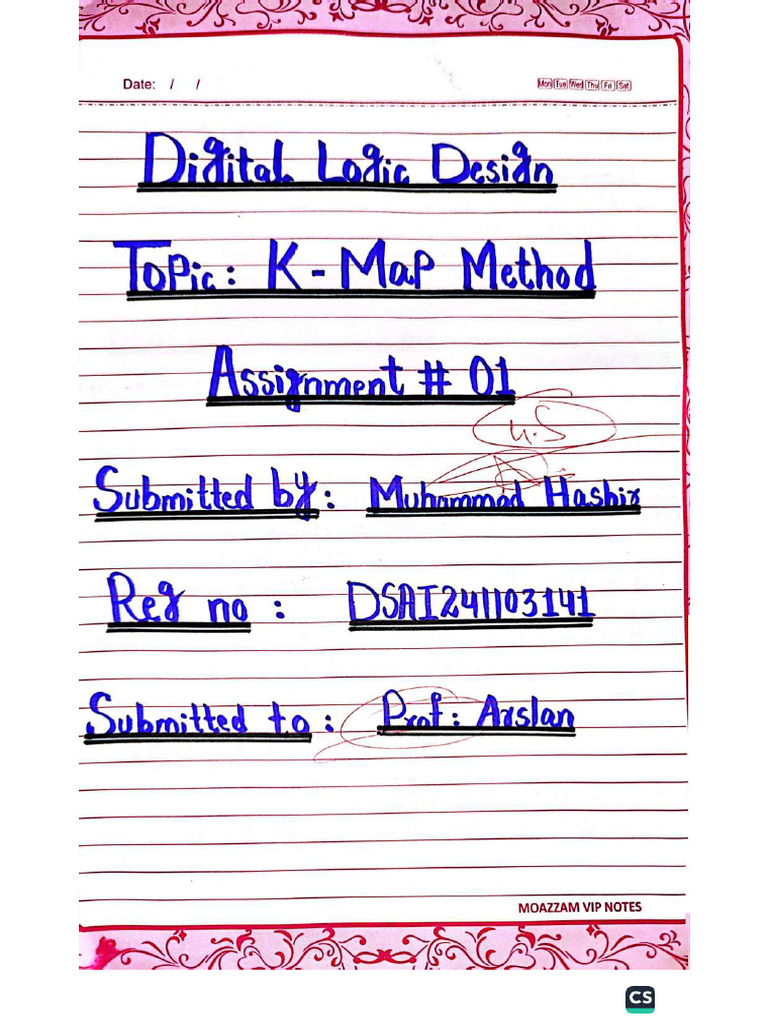 Date: / /
Mon Tue Wed Thu Fri Sat
Digital Logic Design
Topic: K-Map Method
Assignment # 01
4.5
Submitted by: Muhammad Hashir
Reg no : DSAI241103141
Submitted to : Prof: Arslan
MOAZZAM VIP NOTES
CS